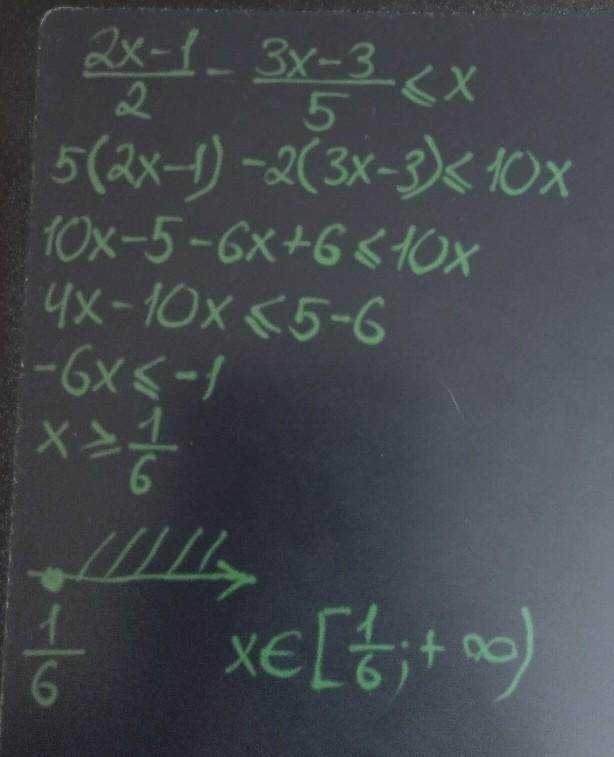 (2x-1)/2 - (3x-3)/5 ⩽ x
5(2x-1) -2(3x-3) ⩽ 10x
10x-5-6x+6 ⩽ 10x
4x-10x ⩽ 5-6
-6x ⩽ -1
x ⩾ 1/6
1/6
x∈[1/6;+∞)